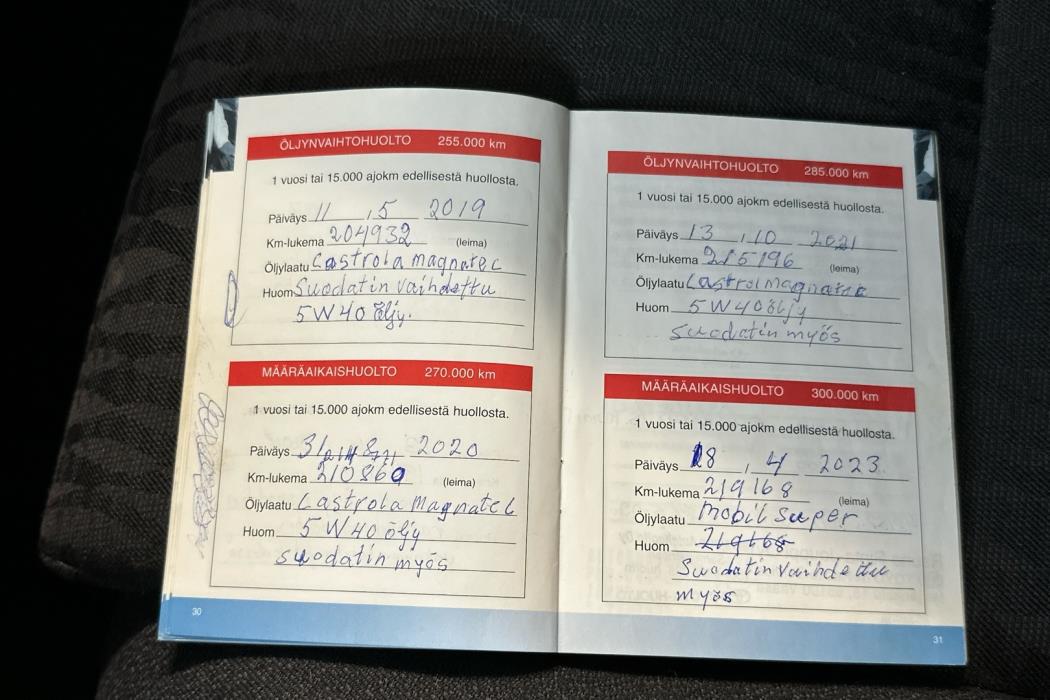 ÖLJYNVAIHTOHUOLTO 255.000 km
1 vuosi tai 15.000 ajokm edellisestä huollosta.
Päiväys 11 , 5 2019
Km-lukema 204932 (leima)
Öljylaatu Castrola magnatec
Huom Suodatin vaihdettu
5W40 öljy.
MÄÄRÄAIKAISHUOLTO 270.000 km
1 vuosi tai 15.000 ajokm edellisestä huollosta.
Päiväys 31 8 2020
Km-lukema 210860 (leima)
Öljylaatu Castrola magnatec
Huom 5W40 öljy
suodatin myös
30
ÖLJYNVAIHTOHUOLTO 285.000 km
1 vuosi tai 15.000 ajokm edellisestä huollosta.
Päiväys 13 , 10 2021
Km-lukema 215196 (leima)
Öljylaatu Castrol magnatec
Huom 5W40 öljy
suodatin myös
MÄÄRÄAIKAISHUOLTO 300.000 km
1 vuosi tai 15.000 ajokm edellisestä huollosta.
Päiväys 18 , 4 2023
Km-lukema 219168 (leima)
Öljylaatu Mobil Super
Huom 219168
Suodatin vaihdettu
myös
31